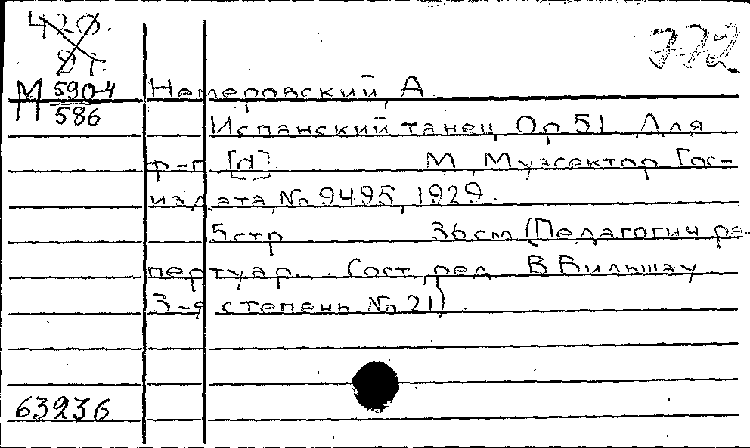 420.
81.
772
М 5904
586
Немеровский, А.
Испанский танец. Op. 51. Для
ф-п. [Л]
М., Музсектор Гос-
издата, № 9495, 1929.
5 стр. 36 см. (Педагогич. ре-
пертуар. Сост., ред. В. Вильшау
3-я степень № 21)
63236